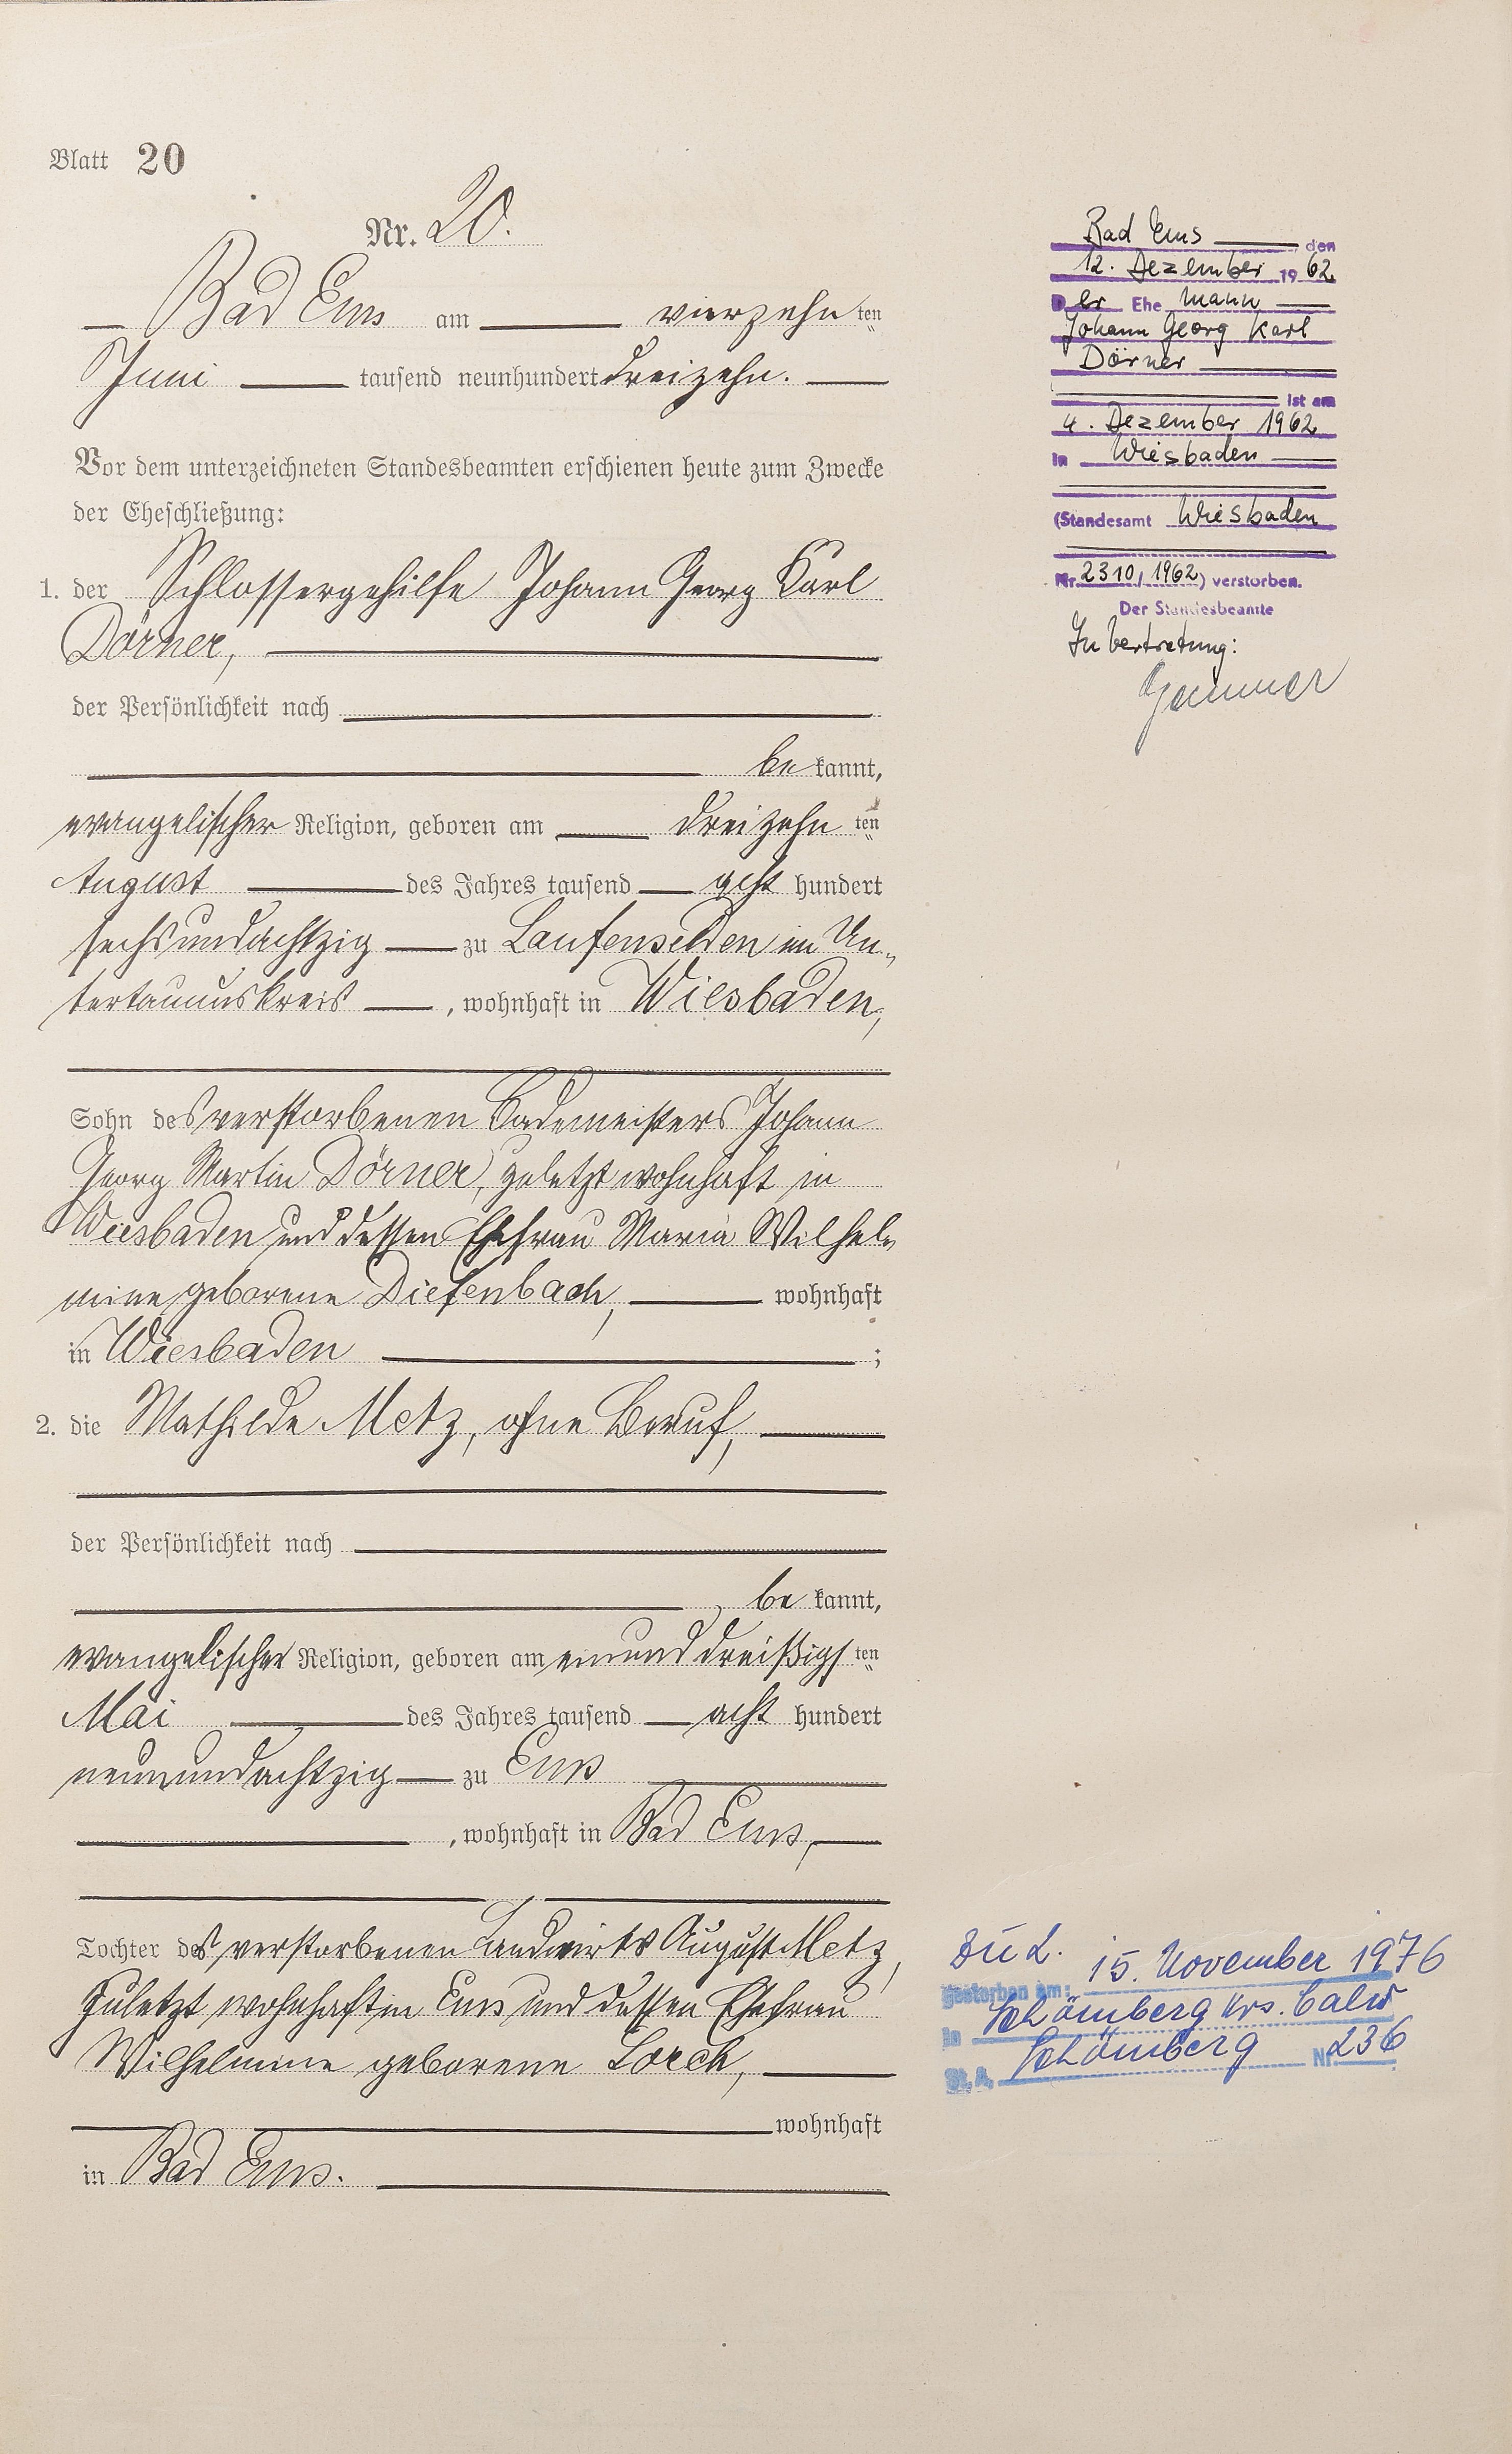 Blatt 20
Nr. 20.
Bad Ems am vierzehn ten
Juni tausend neunhundert dreizehn.
Vor dem unterzeichneten Standesbeamten erschienen heute zum Zwecke
der Eheschließung:
1. der Schlossergehilfe Johann Georg Karl
Dörner,
der Persönlichkeit nach
be kannt,
evangelischer Religion, geboren am dreizehn ten
August des Jahres tausend acht hundert
sechsundachtzig zu Laufenselden im Un„
tertaunuskreis , wohnhaft in Wiesbaden,
Sohn des verstorbenen Bademeisters Johann
Georg Martin Dörner, zuletzt wohnhaft in
Wiesbaden und dessen Ehefrau Maria Wilhel„
mine geborene Diefenbach, wohnhaft
in Wiesbaden ;
2. die Mathilde Metz, ohne Beruf,
der Persönlichkeit nach
be kannt,
evangelischer Religion, geboren am einunddreißigs ten
Mai des Jahres tausend acht hundert
neunundachtzig zu Ems
, wohnhaft in Bad Ems,
Tochter des verstorbenen Landwirts August Metz,
zuletzt wohnhaft in Ems und dessen Ehefrau
Wilhelmine geborene Lorch,
wohnhaft
in Bad Ems.
Bad Ems den
12. Dezember 1962
Der Ehe mann
Johann Georg Karl
Dörner
ist am
4. Dezember 1962
in Wiesbaden
(Standesamt Wiesbaden
Nr. 2310/1962) verstorben.
Der Standesbeamte
In Vertretung:
gestorben am: 15. November 1976
in Schömberg Krs. Calw
St. A. Schömberg Nr. 236